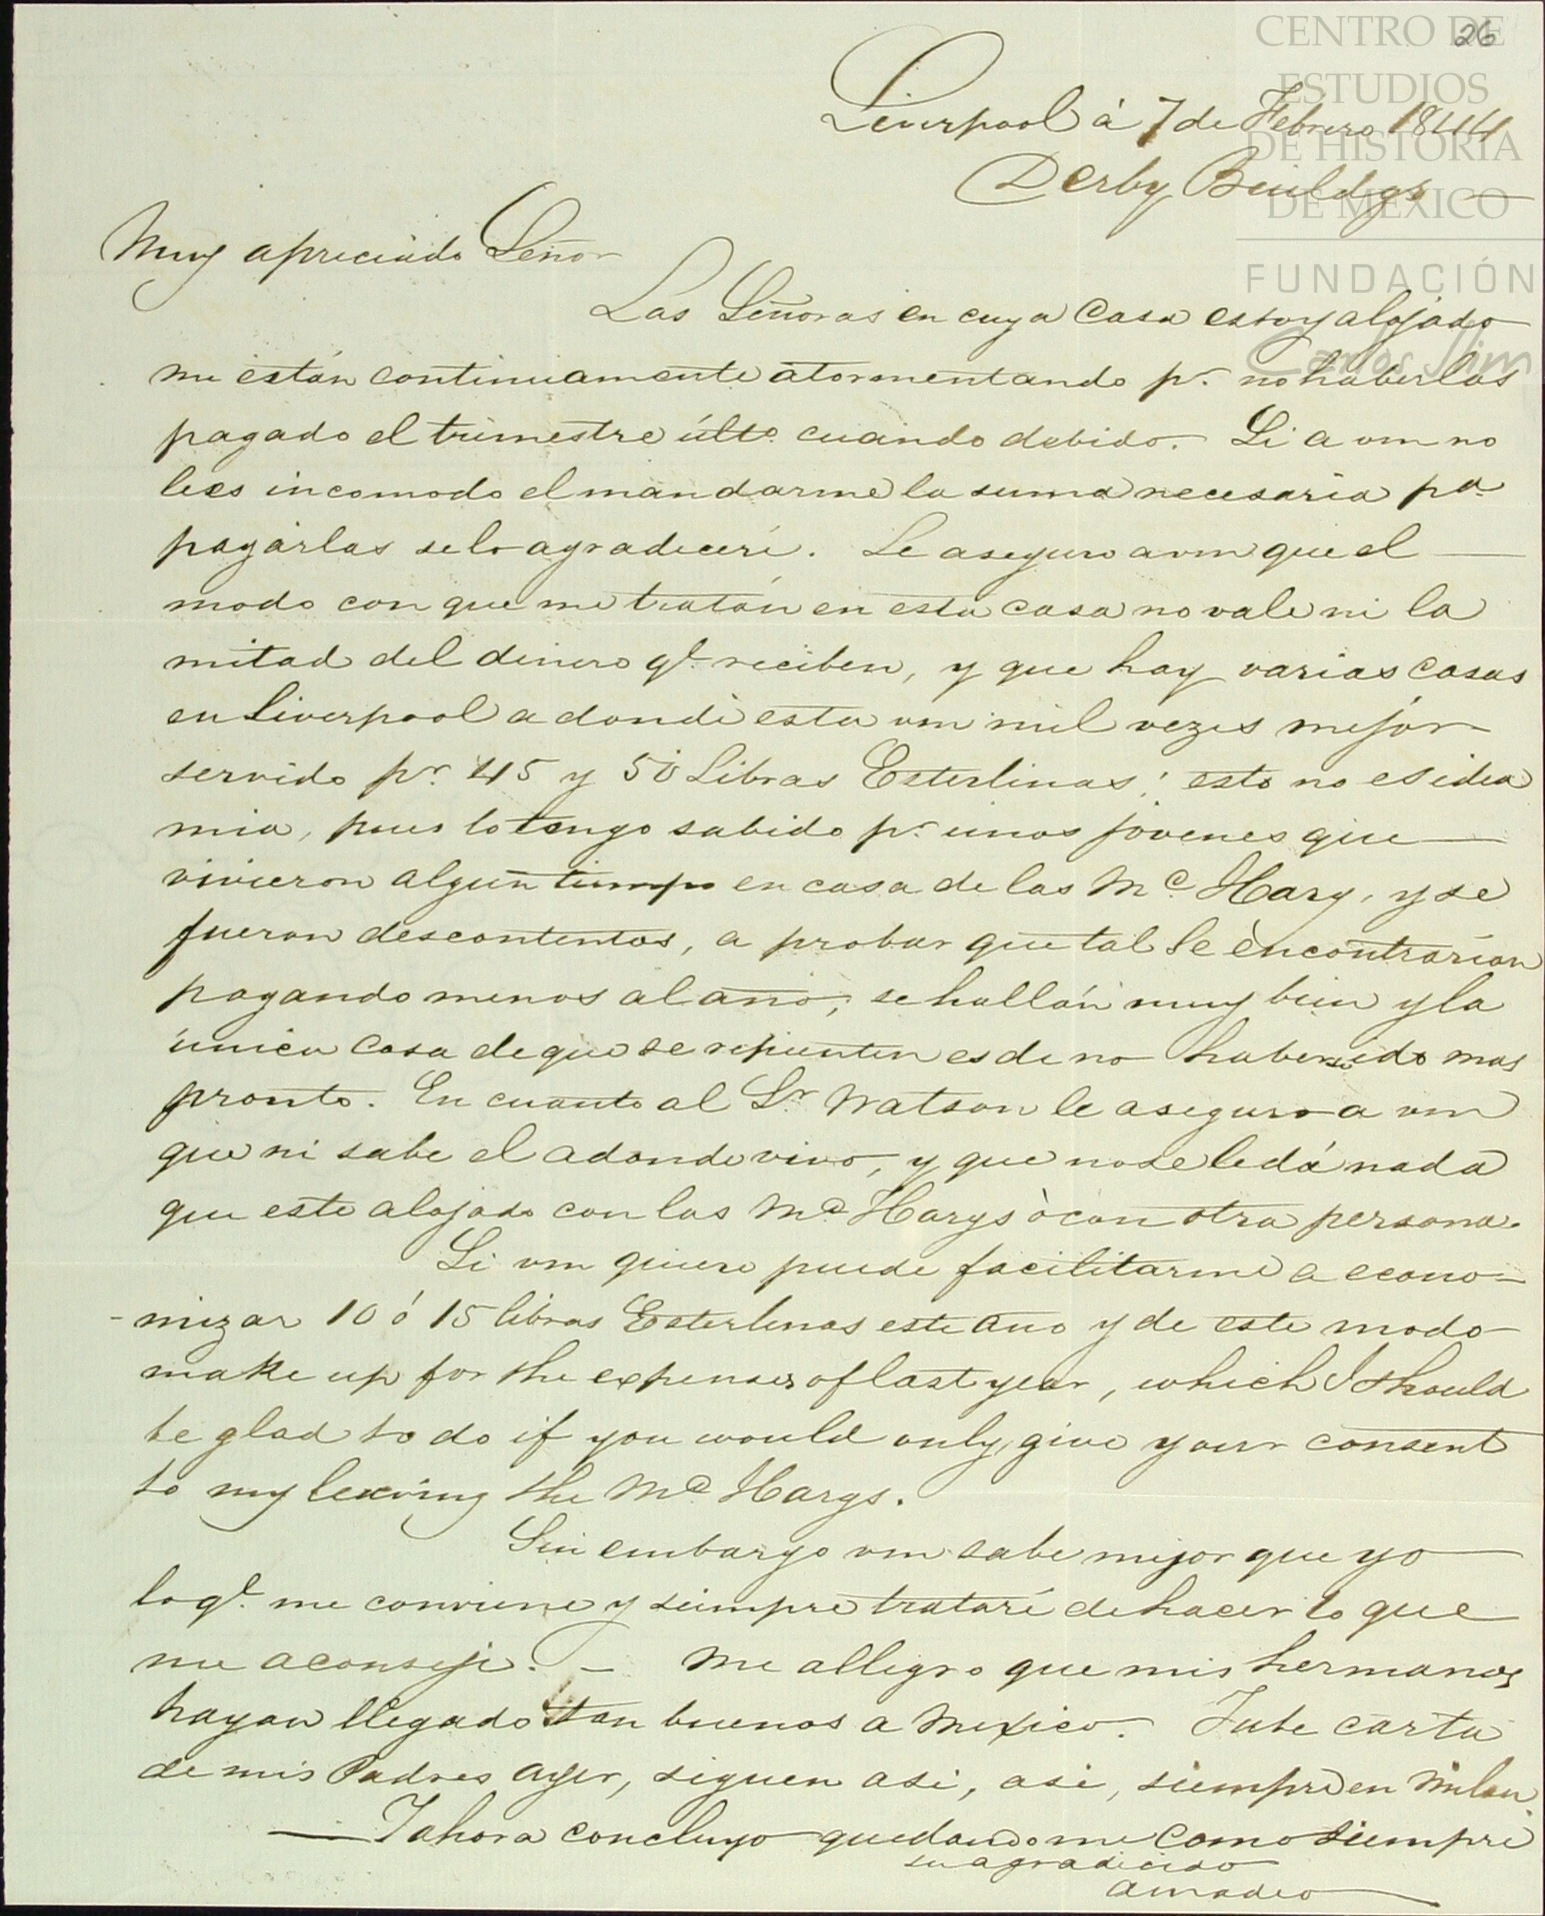 26
CENTRO DE
ESTUDIOS
DE HISTORIA
DE MEXICO
FUNDACIÓN
Carlos Slim
Liverpool á 7 de Febrero 1844
Derby Buildgs —
Muy apreciado Señor
Las Señoras en cuya Casa estoy alojado
me están continuamente atormentando pr. no haberlas
pagado el trimestre últo. cuando debido. Si a vm no
le es incomodo el mandarme la suma necesaria pa.
pagárlas se lo agradeceré. Le aseguro a vm que el —
modo con que me tratán en esta casa no vale ni la
mitad del dinero qe. reciben, y que hay varias casas
en Liverpool a donde esta vm mil vezes mejór
servido pr. 45 y 50 Libras Esterlinas; esto no es idea
mia, pues lo tengo sabido pr. unos jóvenes que —
vivieron algun tiempo en casa de las Mc. Harg, y se
fueron descontentos, a probar que tal se encontrarían
pagando menos al año; se hallán muy bien y la
única cosa de que se repienten es de no haberse ido mas
pronto. En cuanto al Sr. Watson le aseguro a vm
que ni sabe el adonde vivo, y que no se le dá nada
que este alojado con las Mc. Hargs ò con otra persona.
Si vm quiere puede facilitarme a econo-
-mizar 10 ó 15 libras Esterlinas este año y de este modo
make up for the expenses of last year, which I should
be glad to do if you would only give your consent
to my leaving the Mc. Hargs.
Sin embargo vm sabe mejor que yo —
lo qe. me conviene y siempre trataré de hacer lo que
me aconseje. — Me allegro que mis hermanos
hayan llegado tan buenos a Mexico. Tube carta
de mis Padres ayer, siguen asi, asi, siempre en Milan.
— Y ahora concluyo quedandome como siempre
su agradecido
Amadeo